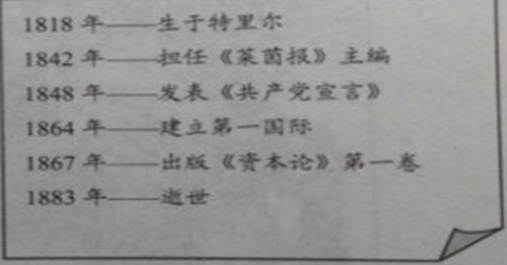 1818 年——生于特里尔
1842 年——担任《莱茵报》主编
1848 年——发表《共产党宣言》
1864 年——建立第一国际
1867 年——出版《资本论》第一卷
1883 年——逝世